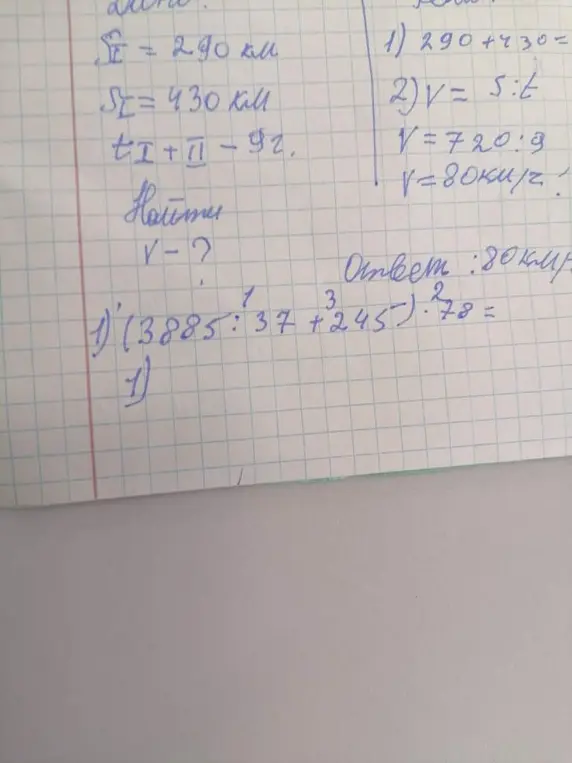 S_I = 290 км
S_I = 430 км
t I + II - 9г.
Найти
v - ?
1) 290 + 430 =
2) v = S : t
v = 720 : 9
v = 80 км/г
Ответ : 80 км/
1) (3885 : 37 + 245) · 78 =
1 3 2
1)